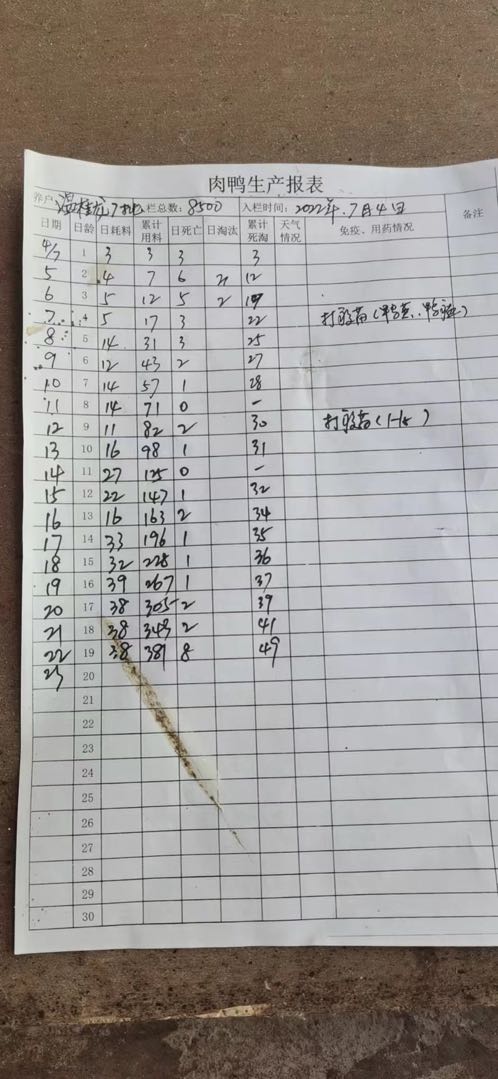 肉鸭生产报表
养户: 温桂龙 栏总数: 8500 入栏时间: 2022年.7月4日
日期 日龄 日耗料 累计用料 日死亡 日淘汰 累计死淘 天气情况 免疫、用药情况 备注
4/7 1 3 3 3 3
5 2 4 7 6 12
6 3 5 12 5 2 19
7 4 5 17 3 22 打疫苗
8 5 14 31 3 25
9 6 12 43 2 27
10 7 14 57 1 28
11 8 14 71 0 -
12 9 11 82 2 30 打疫苗
13 10 16 98 1 31
14 11 27 125 0 -
15 12 22 147 1 32
16 13 16 163 2 34
17 14 33 196 1 35
18 15 32 228 1 36
19 16 39 267 1 37
20 17 38 305 2 39
21 18 38 343 2 41
22 19 38 381 8 49
23 20
21
22
23
24
25
26
27
28
29
30